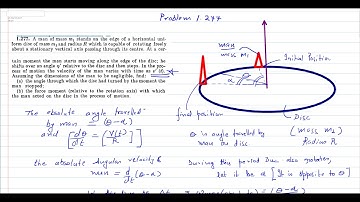 Problem 1.277
1.277. A man of mass m₁ stands on the edge of a horizontal uni-
form disc of mass m₂ and radius R which is capable of rotating freely
about a stationary vertical axis passing through its centre. At a cer-
tain moment the man starts moving along the edge of the disc; he
shifts over an angle φ' relative to the disc and then stops. In the pro-
cess of motion the velocity of the man varies with time as v' (t).
Assuming the dimensions of the man to be negligible, find:
(a) the angle through which the disc had turned by the moment
the man stopped;
(b) the force moment (relative to the rotation axis) with which
the man acted on the disc in the process of motion.
man
mass m₁
Initial Position
α
final position
Disc
(mass m₂
Radius R
The absolute angle travelled
by man = (θ-α)
and [dθ/dt = V'(t)/R]
θ is angle travelled by
man on disc
the absolute Angular velocity of
man = d/dt (θ-α)
During this period Disc also rotates,
let it be α [ is opposite to θ]